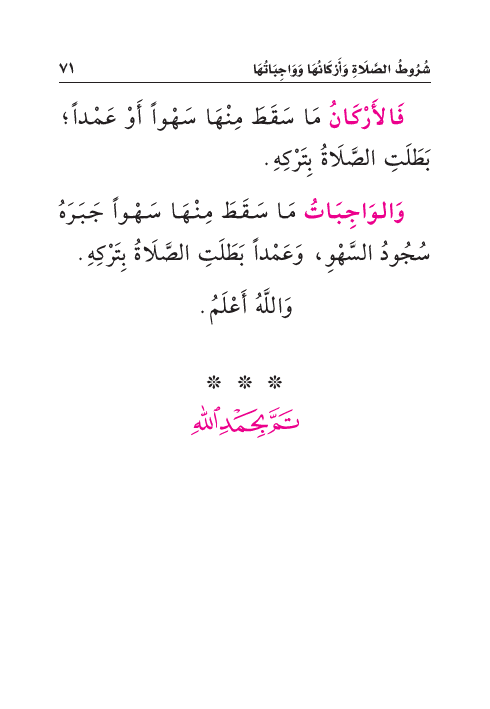 شُرُوطُ الصَّلَاةِ وَأَرْكَانُهَا وَوَاجِبَاتُهَا ٧١
فَالأَرْكَانُ مَا سَقَطَ مِنْهَا سَهْواً أَوْ عَمْداً؛
بَطَلَتِ الصَّلَاةُ بِتَرْكِهِ.
وَالوَاجِبَاتُ مَا سَقَطَ مِنْهَا سَهْواً جَبَرَهُ
سُجُودُ السَّهْوِ، وَعَمْداً بَطَلَتِ الصَّلَاةُ بِتَرْكِهِ.
وَاللَّهُ أَعْلَمُ.
تَمَّ بِحَمْدِ اللهِ